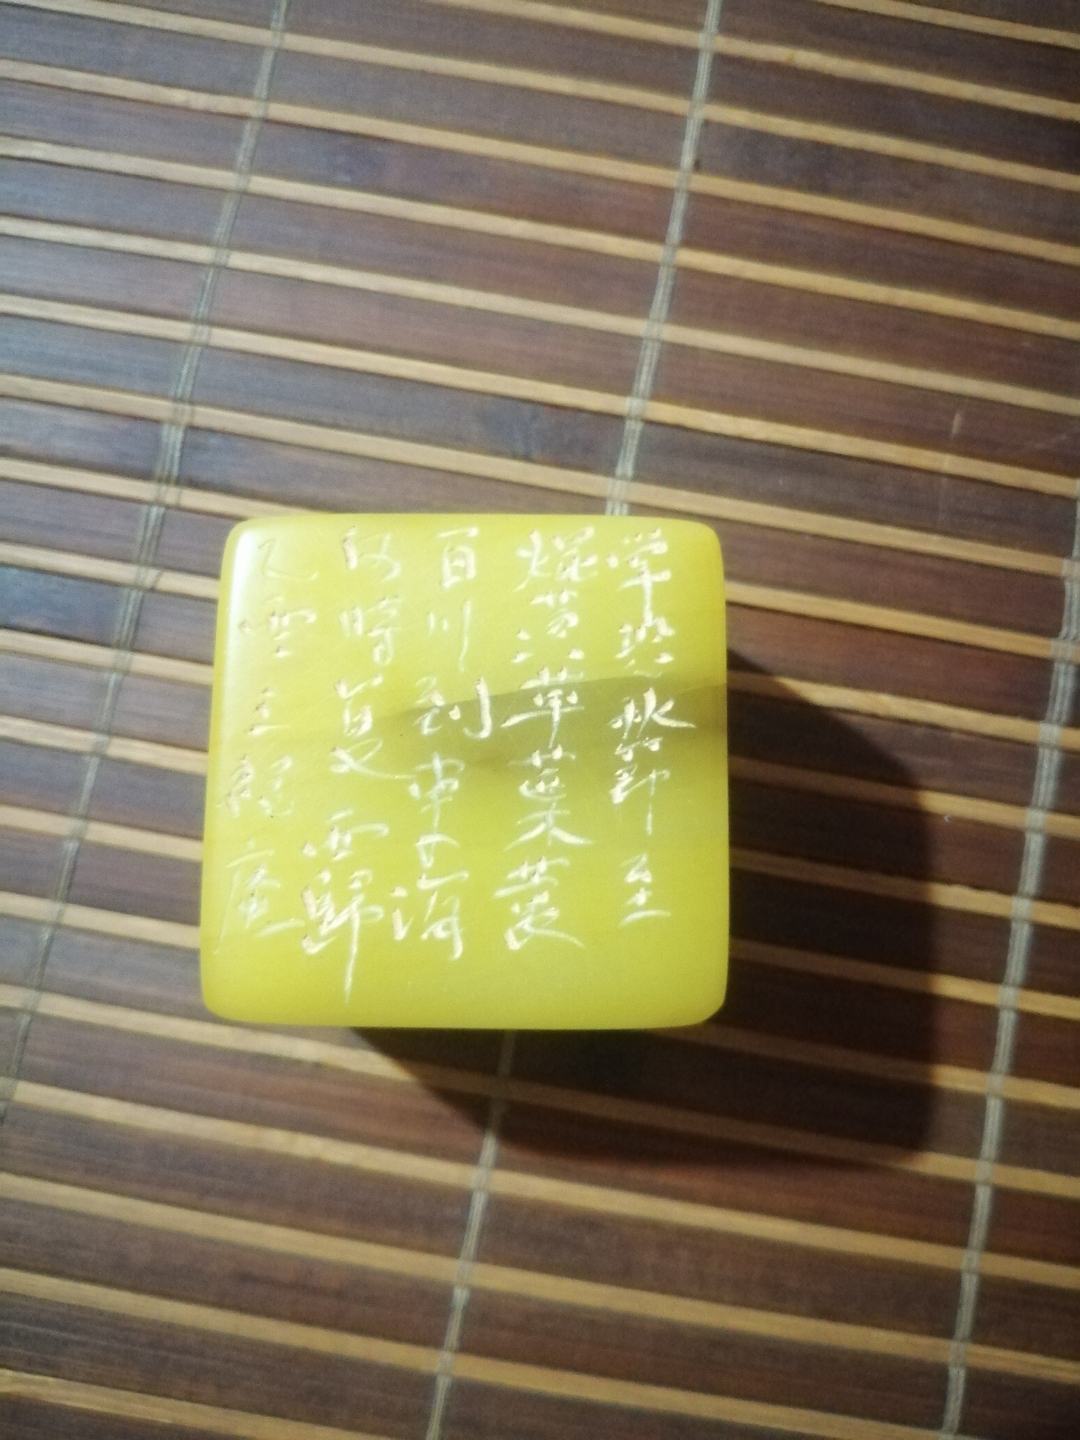 常恐秋節至
焜黃華葉衰
百川到東海
何時复西歸
雲
庵